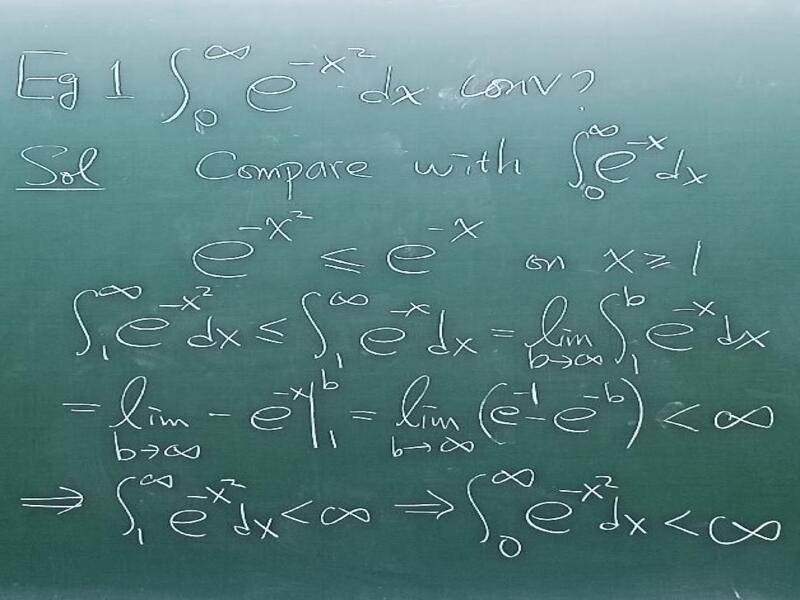 Eg 1 ∫₀^∞ e^{-x²} dx conv?
Sol Compare with ∫₀^∞ e^{-x} dx
e^{-x²} ≤ e^{-x} on x ≥ 1
∫₁^∞ e^{-x²} dx ≤ ∫₁^∞ e^{-x} dx = lim_{b→∞} ∫₁^b e^{-x} dx
= lim_{b→∞} - e^{-x} |₁^b = lim_{b→∞} (e^{-1} - e^{-b}) < ∞
⇒ ∫₁^∞ e^{-x²} dx < ∞ ⇒ ∫₀^∞ e^{-x²} dx < ∞